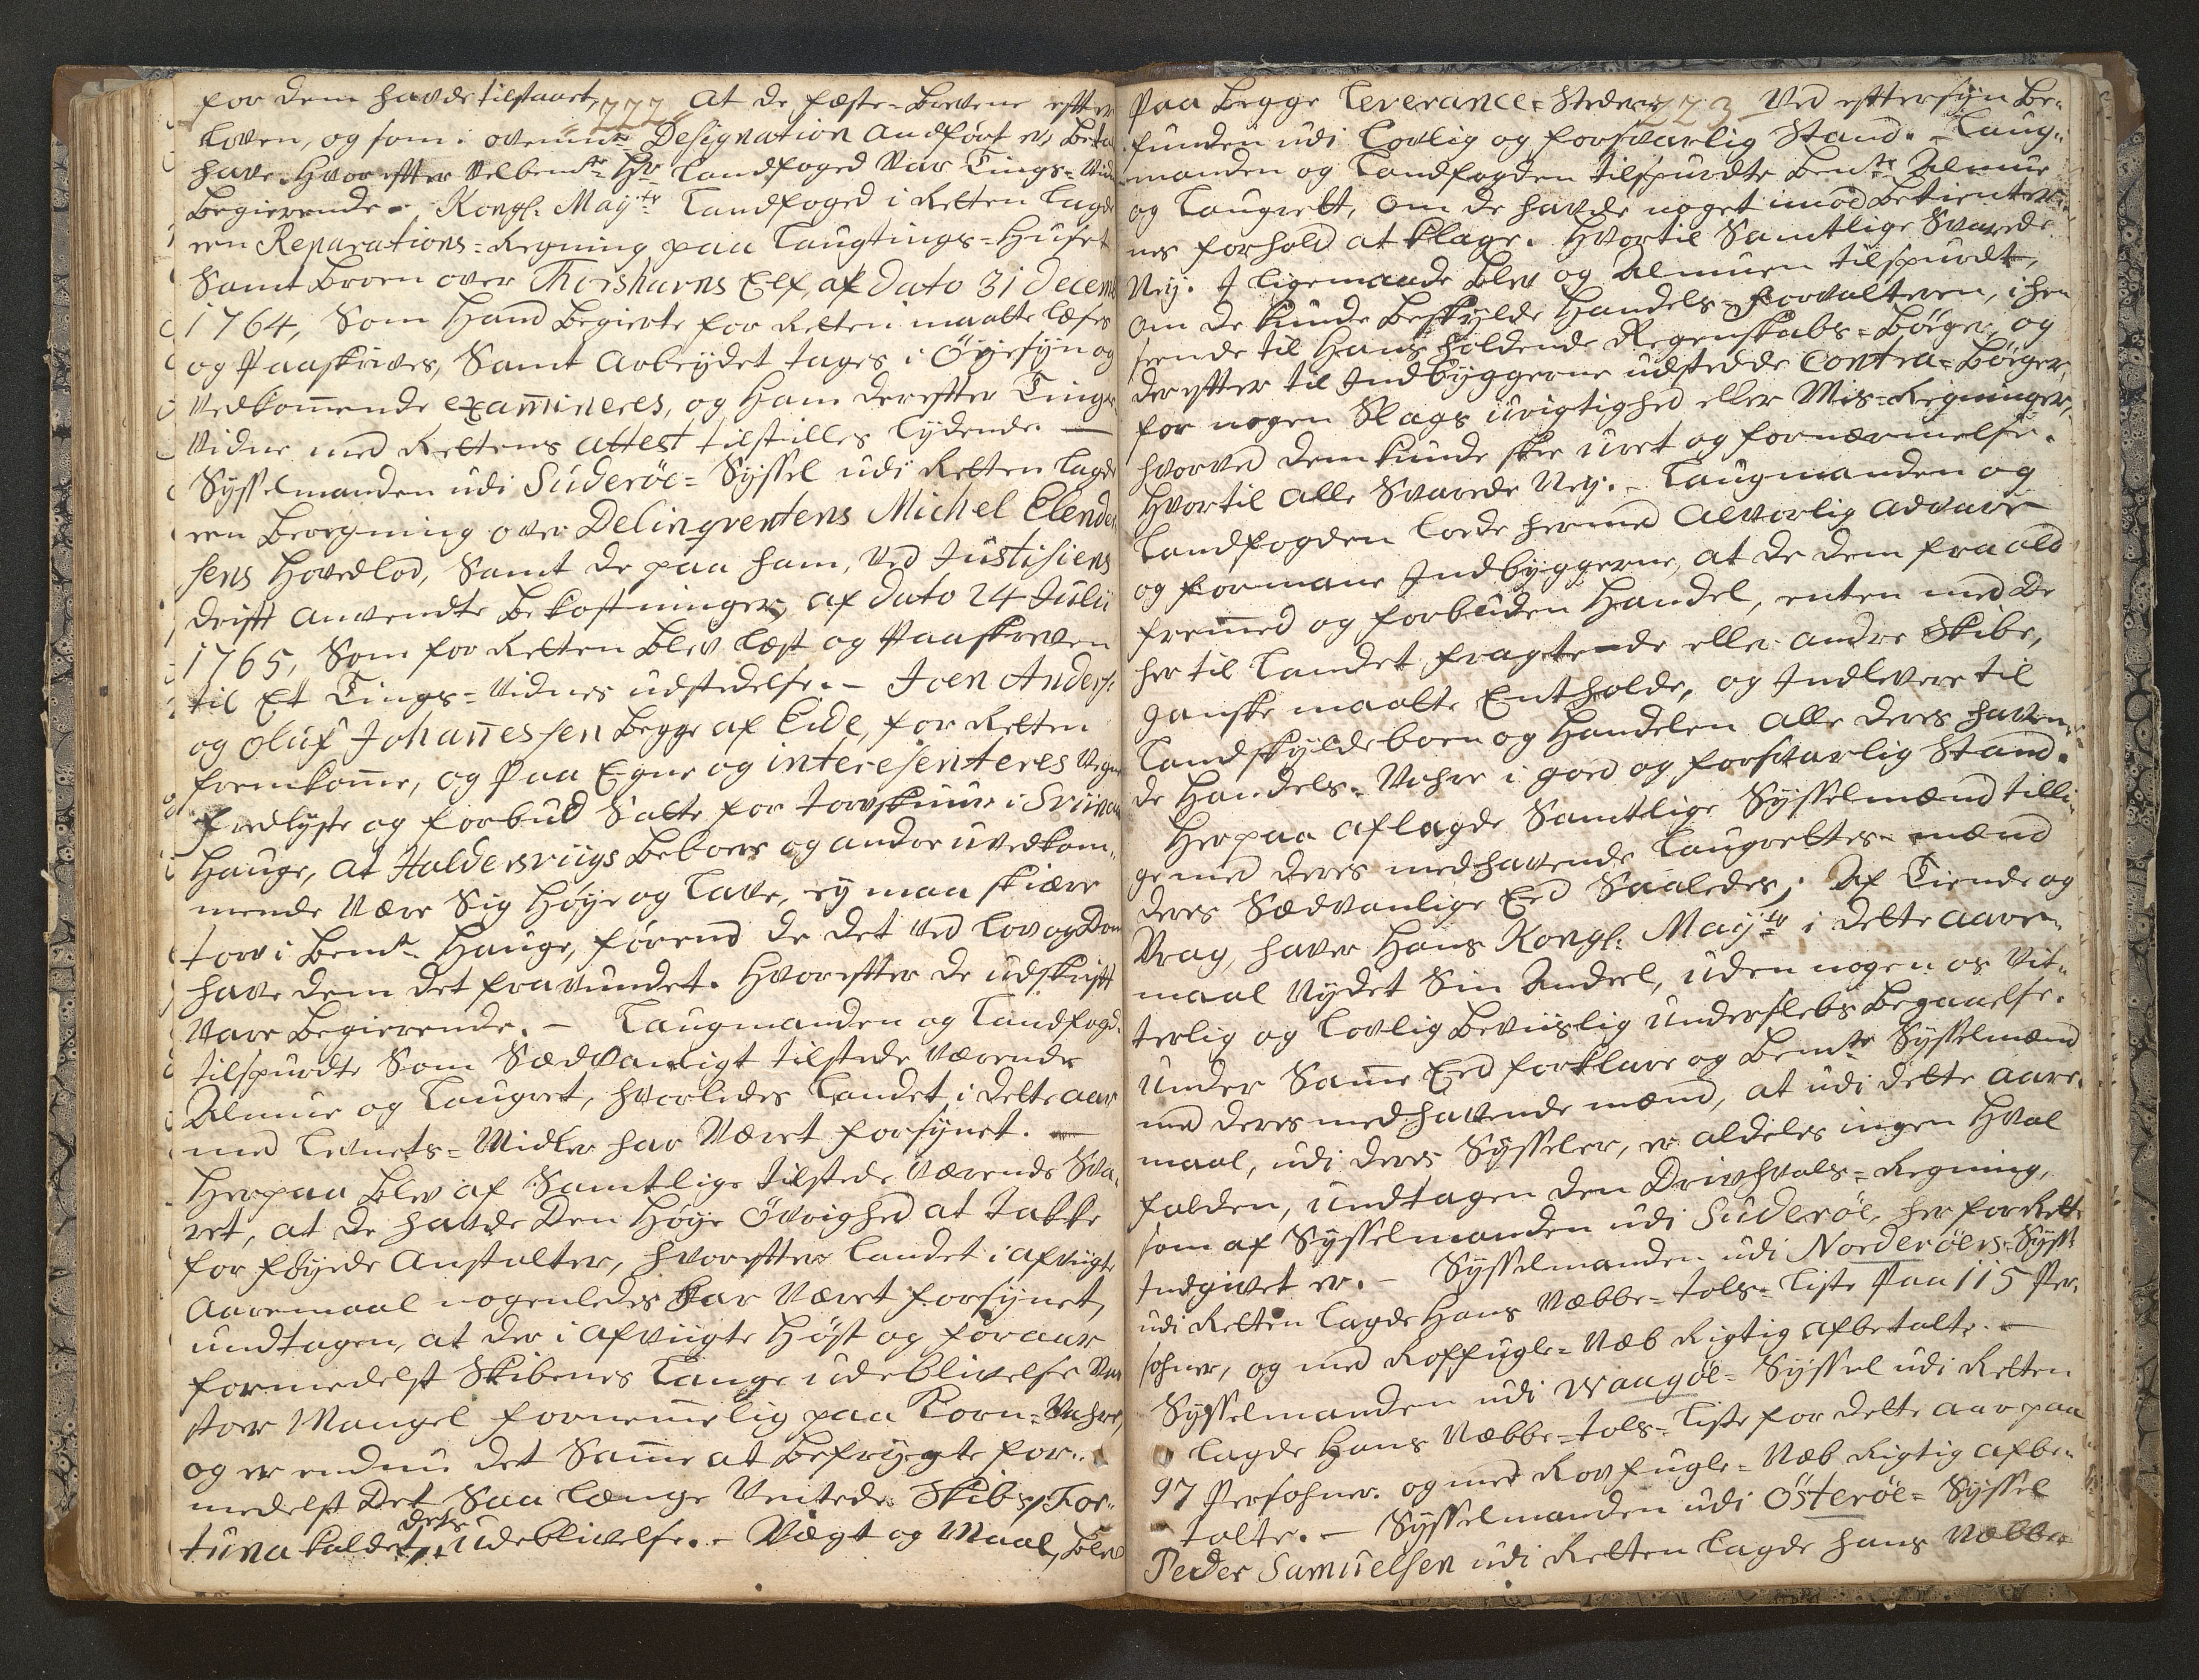 for dem havde tilstaaet, at de fæste-Brevene efter
222
Loven, og som i ovenmte Designation andført er, Beta
have. Hvorefter Velbemte Hr Landfoged var Tings-Vidne
Begierende. Kongl: Mayts Landfoged i Retten lagde
een Reparations-Regning paa Laugtings-Huset
Samt Broen over Thorshavns Elf, af dato 31 Decemb
1764, Som Hand Begierte for Retten maatte læses
og Paaskrives, Samt Arbeydet tages i Øyesyn og
Vedkommende examineres, og Ham derefter Tings
Vidne med Rettens attest tilstilles lydende. —
Sysselmanden udi Suderöe-Syssel udi Retten lagde
een Beregning over Delinqventens Michel Elende
sens Hovedlod, Samt de paa ham, ved Justisiens
drift anvendte Bekostninger, af dato 24 Julii
1765, Som for Retten Blev læst og Paaskreven
til Et Tings-Vidnes udstedelse. — Joen Anders:
og Oluf Johannessen Begge af Eide, for Retten
fremkomme, og Paa Egne og interesenteres Vegne
fredlyste og forbud Satte for torvskuur i
Hauge, at Haldersviigs Beboere og andre uvedkom-
mende Være Sig Høye og Lave, ey maa skiære
torv i Bemte Hauge, førend de det ved Lov og Dom
have dem det fravundet. Hvorefter de udskrift
Vare Begierende. — Laugmanden og Landfogd:
tilspurdte Som Sædvanligt tilstede Værende
Almue og Laugret, hvorledes Landet i dette aar
med Levnets-Midler har Været forsynet. —
Herpaa Blev af Samtlige tilstede Værende Sva-
ret, at de havde Den Høye Övrighed at takke
for føyede Anstalter, hvorefter Landet i afvigte
Aaremaal nogenledes har Været forsynet,
undtagen, at der i afviigte Høst og foraar
formedelst Skibenes Lange udeblivelse Var
stor Mangel fornemmelig paa Korn-Vahre,
og er endnu det Samme at Befrygte for-
medelst Det Saa længe Ventede Skibs, For-
tuna kaldet, dets udeblivelse. — Vægt og Maal, Blev
Paa Begge Leverance-Stederne 223 Ved eftersyn Be-
funden udi Lovlig og forsvarlig Stand. — Laug-
manden og Landfogden tilspurdte Bemte Almue
og Laugrett, om de havde noget imod Betienter-
nes forhold at klage. Hvortil Samtlige Svarede
Ney. I ligemaade Blev og Almuen tilspurdt,
om de kunde Beskylde Handels-Forvalteren, i hen
seende til Hans holdende Regenskabs-Bøger, og
derefter til Indbyggerne udstedde Contra-Bøger,
for nogen Slags urigtighed eller Mis-Regninger,
hvorved dem kunde skee uret og fornærmelse.
Hvortil alle Svarede Ney. — Laugmanden og
Landfogden lode hermed alvorlig advare
og formane Indbyggerne, at de dem fra ald
fremmed og forbuden Handel, enten med de
her til Landet fragtende eller andre Skibe,
ganske maatte Entholde, og Indlevere til
Landskyldeboen og Handelen alle deres haven-
de Handels-Vahre i goed og forsvarlig Stand.
Herpaa aflagde Samtlige Sysselmænd tilli-
ge med deres medhavende Laugrettes-mænd
deres Sædvanlige Eed Saaledes; Af Tiende og
Vrag, haver Hans Kongl: Mayts i dette aare-
maal Nydet Sin Andeel, uden nogen os Vit-
terlig og Lovlig Beviislig Underslebs Begaaelse.
Under Samme Eed forklare og Bemte Sysselmænd
med deres medhavende mænd, at udi dette aare-
maal, udi deres Sysseler, er aldeles ingen Hval
falden, undtagen den Drivhvals-Regning,
som af Sysselmanden udi Suderöe, her for Rette
Indgivet er. — Sysselmanden udi Norderöers-Syssel
udi Retten lagde Hans Næbbe-tols-Liste Paa 115 Per-
sohner, og med Roffugle-Næb Rigtig afbetalte. —
Sysselmanden udi Waagöe-Syssel udi Retten
lagde Hans Næbbe-tols-Liste for dette aar paa
97 Persohner og med Rovfugle-Næb Rigtig afbe-
talte. — Sysselmanden udi Österöe-Syssel
Peder Samuelsen udi Retten lagde hans Næbbe